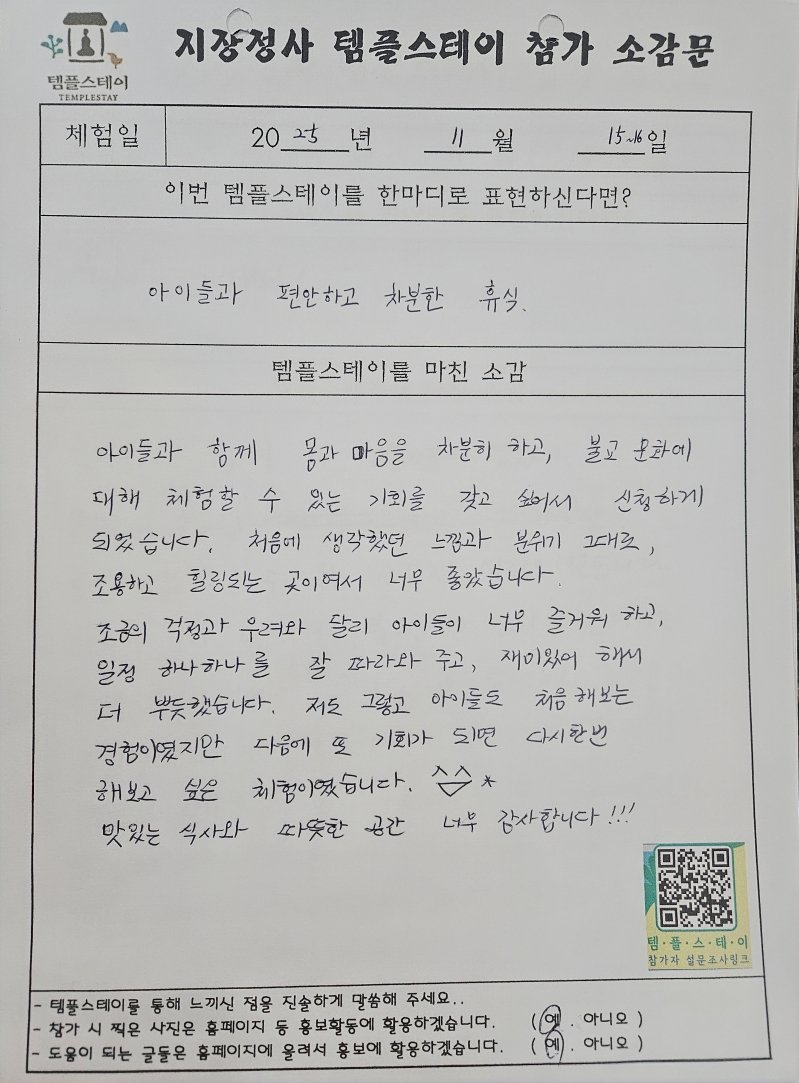 템플스테이
TEMPLESTAY
지장정사 템플스테이 참가 소감문
체험일 2025년 11월 15~16일
이번 템플스테이를 한마디로 표현하신다면?
아이들과 편안하고 차분한 휴식.
템플스테이를 마친 소감
아이들과 함께 몸과 마음을 차분히 하고, 불교 문화에
대해 체험할 수 있는 기회를 갖고 싶어서 신청하게
되었습니다. 처음에 생각했던 느낌과 분위기 그대로,
조용하고 힐링되는 곳이여서 너무 좋았습니다.
조금의 걱정과 우려와 달리 아이들이 너무 즐거워 하고,
일정 하나하나를 잘 따라와 주고, 재미있어 해서
더 뿌듯했습니다. 저도 그렇고 아이들도 처음 해보는
경험이였지만 다음에 또 기회가 되면 다시한번
해보고 싶은 체험이였습니다. ^^*
맛있는 식사와 따뜻한 공간 너무 감사합니다!!!
템·플·스·테·이
참가자 설문조사링크
- 템플스테이를 통해 느끼신 점을 진솔하게 말씀해 주세요..
- 참가 시 찍은 사진은 홈페이지 등 홍보활동에 활용하겠습니다. (예 . 아니오 )
- 도움이 되는 글들은 홈페이지에 올려서 홍보에 활용하겠습니다. (예 . 아니오 )